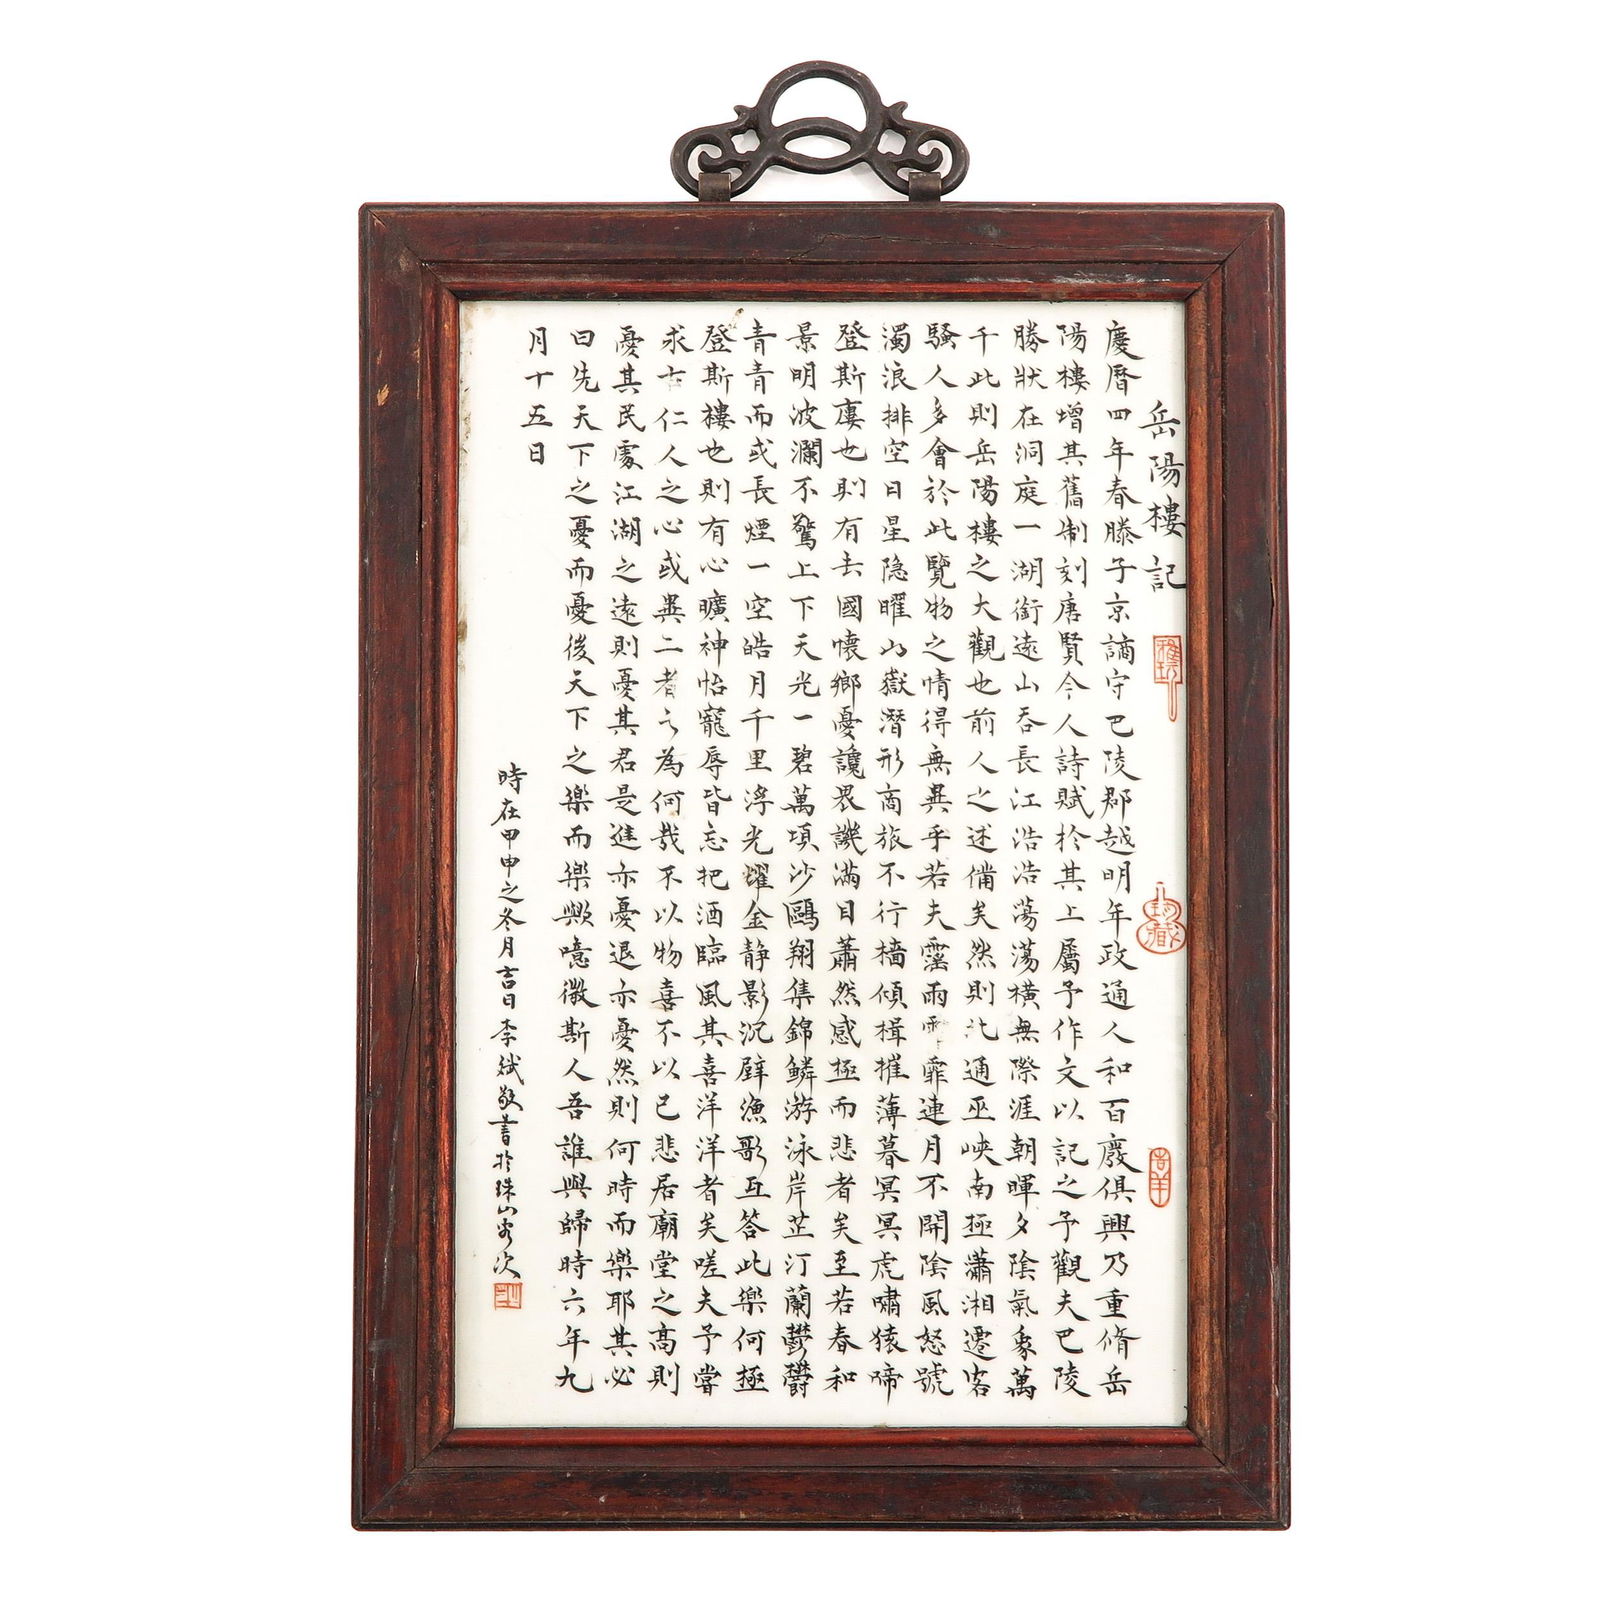 岳陽樓記
雅玩
珍藏
吉羊
慶曆四年春滕子京謫守巴陵郡越明年政通人和百廢俱興乃重脩岳
陽樓增其舊制刻唐賢今人詩賦於其上屬予作文以記之予觀夫巴陵
勝狀在洞庭一湖銜遠山吞長江浩浩蕩蕩橫無際涯朝暉夕陰氣象萬
千此則岳陽樓之大觀也前人之述備矣然則北通巫峽南極瀟湘遷客
騷人多會於此覽物之情得無異乎若夫霪雨霏霏連月不開陰風怒號
濁浪排空日星隱曜山嶽潛形商旅不行檣傾楫摧薄暮冥冥虎嘯猿啼
登斯樓也則有去國懷鄉憂讒畏譏滿目蕭然感極而悲者矣至若春和
景明波瀾不驚上下天光一碧萬項沙鷗翔集錦鱗游泳岸芷汀蘭鬱鬱
青青而或長煙一空皓月千里浮光耀金静影沉璧漁歌互答此樂何極
登斯樓也則有心曠神怡寵辱皆忘把酒臨風其喜洋洋者矣嗟夫予嘗
求古仁人之心或異二者之為何哉不以物喜不以已悲居廟堂之高則
憂其民處江湖之遠則憂其君是進亦憂退亦憂然則何時而樂耶其必
曰先天下之憂而憂後天下之樂而樂歟噫微斯人吾誰與歸時六年九
月十五日
時在甲申之冬月吉日李斌敬書於珠山客次